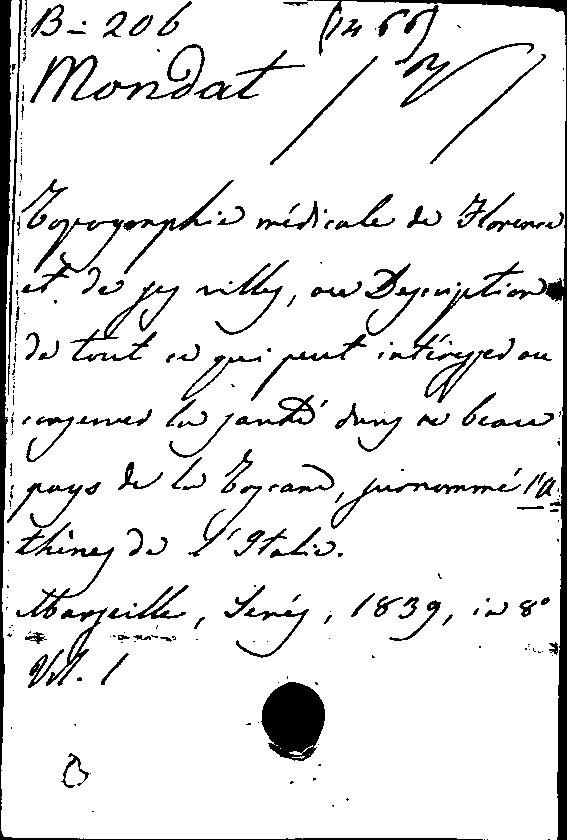 B = 206 (14 66)
Mondat
Topographie médicale de Florence
et de ses villes, ou Description
de tout ce qui peut intéresser ou
conserver la santé dans ce beau
pays de la Toscane, surnommé l'A
thènes de l'Italie.
Marseille, Senés, 1839, in 8°
Vol. 1